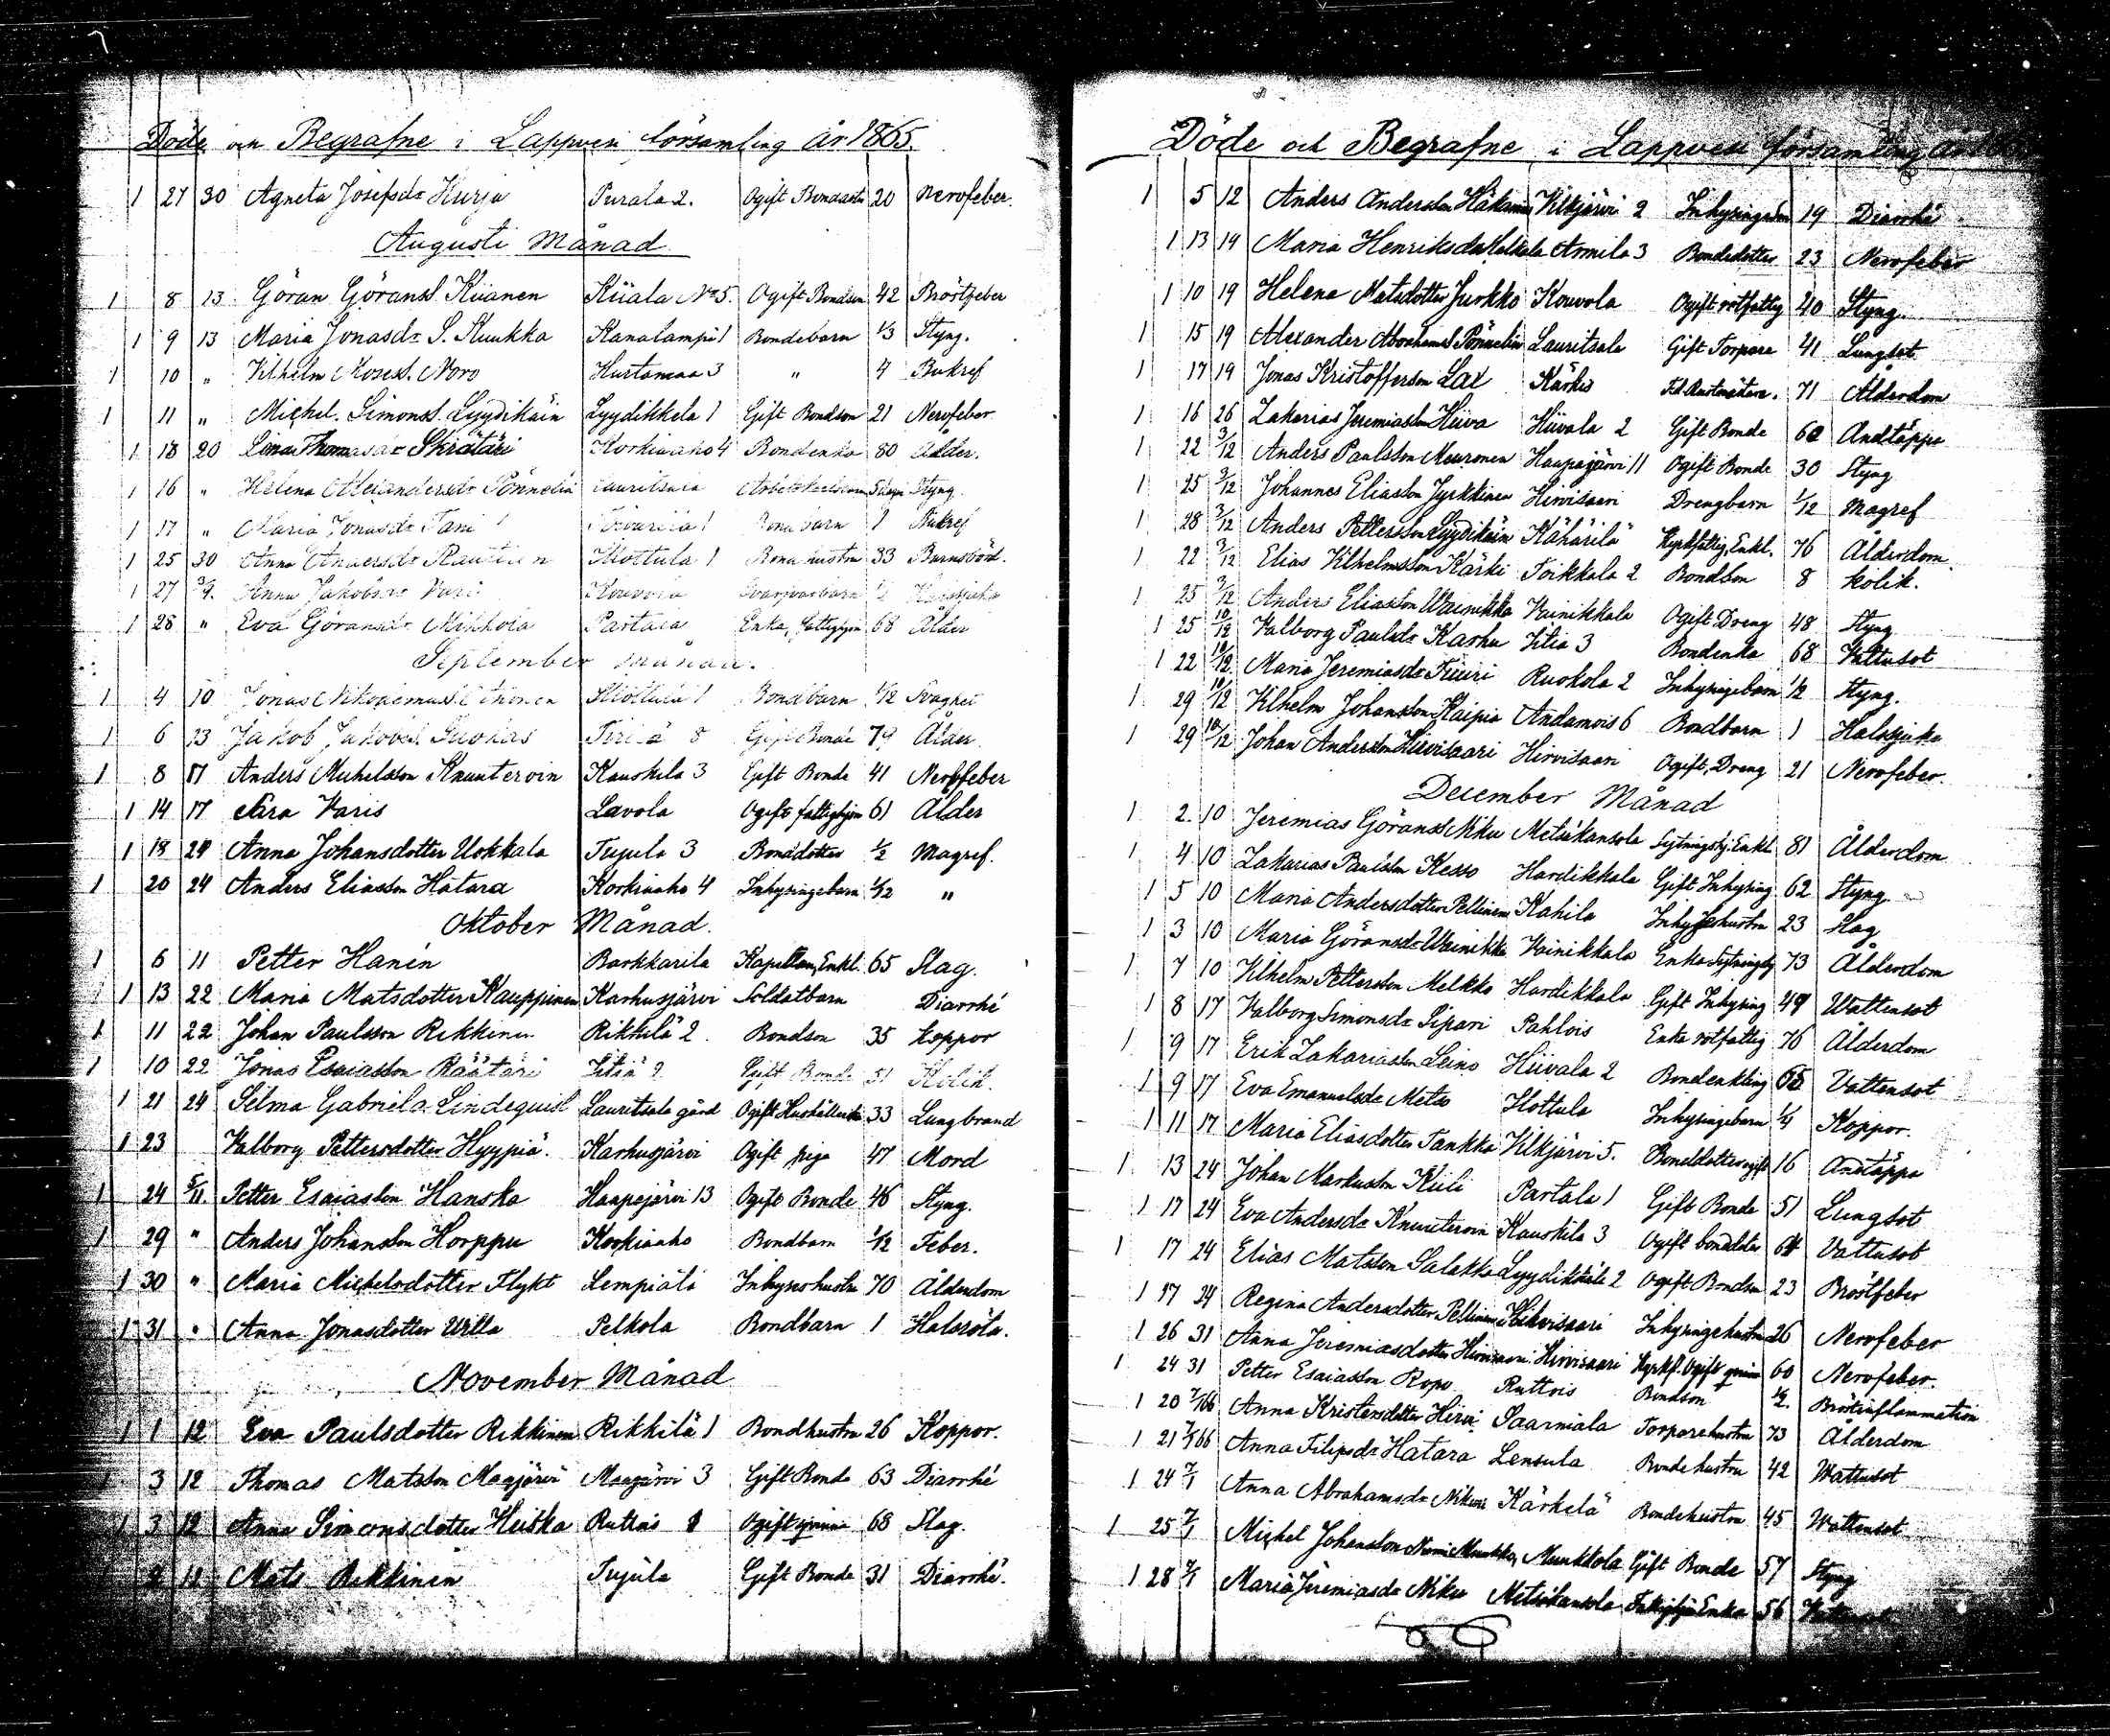 Döde och Begrafne i Lappvesi församling år 1865.
1 27 30 Agneta Josefsdr Hurja Purala 2. Ogift 20 Nervfeber.
Augusti Månad
1 8 13 Göran Göranss. Kiianen Kiiala No 5. Ogift Bondson 42 Bröstfeber
1 9 13 Maria Jonasdr S. Kuukka Kanalampi 1 Bondebarn 1/3 Styng.
1 10 " Vilhelm Moses. Noro Hurtamaa 3 " 4 Bukref
1 11 " Michel Simonss. Lyydikäin Lyydikkela 1 Gift Bondson 21 Nervfeber
1 18 20 Lena Thomasdr Skrätäri Korkiaaho 4 Bondenka 80 Ålder.
1 16 " Helena Alexandersdr Pönnelin Lauritsala Styng
1 17 " Maria Jonasdr Tani 1 Bondbarn 1 Bukref
1 25 30 Anna Andersdr Rautian Hottula 1 Bondhustru 33 Barnsbörd.
1 27 3/9. Anna Jakobsdr Kouvola 1/2 Halssjuka
1 28 " Eva Göransdr Mikkola Partala Enka, fattighjon 68 Ålder
September månad.
1 4 10 Jonas Hottula 1 Bondbarn 1/12 Svaghet
1 6 13 Jakob Jakobss. Suokas 8 Gift Bonde 79 Ålder
1 8 17 Anders Michelsson Knuuteroin Kauskila 3 Gift Bonde 41 Nervfeber
1 14 17 Sara Varis Lavola Ogift fattighjon 61 Ålder
1 18 24 Anna Johansdotter Uokkala Tujula 3 Bonddotter 1/2 Magref.
1 20 24 Anders Eliasson Hatara Korkiaaho 4 Inhysingebarn 1/12 "
Oktober Månad.
1 6 11 Petter Hanén Barkkarila Kapellan, Enkl. 65 Slag.
1 13 22 Maria Matsdotter Kauppinen Karhusjärvi Soldatbarn Diarrhé
1 11 22 Johan Paulsson Rikkinen Rikkilä 2 Bondson 35 koppor
1 10 22 Jonas Esaiasson Räätäri Gift Bonde 51 Kolik.
1 21 24 Selma Gabriela Lindequist Lauritsala gård Ogift Hushållerska 33 Lungbrand
1 23 Valborg Pettersdotter Hyypiä. Karhusjärvi Ogift piga 47 Mord
1 24 5/11. Petter Esaiasson Hanska Haapajärvi 13 Ogift Bonde 46 Styng.
1 29 " Anders Johansson Horppu Korkiaaho Bondbarn 1/12 Feber.
1 30 " Maria Michelsdotter Flykt Lempiälä Inhyseshustru 70 Ålderdom
1 31 " Anna Jonasdotter Villa Pelkola Bondbarn 1 Halsröta.
November Månad
1 1 12 Eva Paulsdotter Rikkinen Rikkilä 1 Bondhustru 26 Koppor.
1 3 12 Thomas Matsson Maajärvi Maajärvi 3 Gift Bonde 63 Diarrhé
1 3 12 Anna Simonsdotter Heiska Ruttois Ogift qvinna 68 Slag.
1 2 12 Mats Rikkinen Tujula Gift Bonde 31 Diarrhé.
Döde och Begrafne i Lappvesi församling år
1 5 12 Anders Andersson Häkämies Vilkjärvi 2 Inhysingeson 19 Diarrhé
1 13 19 Maria Henriksdr Kalkala Armila 3 Bondedotter 23 Nervfeber
1 10 19 Helena Matsdotter Jurkko Kouvola Ogift rotfattig 40 Styng.
1 15 19 Alexander Abrahams Pönnelin Lauritsala Gift Torpare 41 Lungsot
1 17 19 Jonas Kristofferson Lax Kärkis 71 Ålderdom
1 16 26 Zakarias Jeremiasson Hiiva Hiivala 2 Gift Bonde 60 Andtäppa
1 22 3/12 Anders Paulsson Meuronen Haapajärvi 11 Ogift Bonde 30 Styng
1 25 3/12 Johannes Eliasson Jyrkkinen Hirvisaari Drengbarn 1/12 Magref
1 28 3/12 Anders Pettersson Lyydikäin Kähärilä Kyrkfattig, Enkl. 76 Ålderdom
1 22 3/12 Elias Vilhelmsson Kärki Toikkala 2 Bondson 8 kolik.
1 25 3/12 Anders Eliasson Wainikka Vainikkala Ogift Dreng 48 Styng
1 25 10/12 Valborg Paulsdr Karhu Iitia 3 Bondenka 68 Vattusot
1 22 10/12 Maria Jeremiasdr Fiuri Ruokola 2 Inhysingebarn 1/2 Styng.
1 29 10/12 Vilhelm Johansson Kaipia Andamois 6 Bondbarn 1 Halssjuka
1 29 10/12 Johan Andersson Hirvisaari Hirvisaari Ogift, Dreng 21 Nervfeber.
December Månad
1 2 10 Jeremias Göranss Niku Metsäkansola Enkl 81 Ålderdom
1 4 10 Zakarias Paulsson Kesso Hardikkala Gift Inhysing 62 Styng
1 5 10 Maria Andersdotter Pellinen Kahila Inhyseshustru 23 Slag
1 3 10 Maria Göransdr Wainikka Vainikkala Enka 73 Ålderdom
1 7 10 Vilhelm Pettersson Melkko Hardikkala Gift Inhysing 49 Wattensot
1 8 17 Valborg Simonsdr Sipari Pahlois Enka rotfattig 76 Ålderdom
1 9 17 Erik Zakariasson Leino Hiivala 2 Bondenkling Vattensot
1 9 17 Eva Emanuelsdr Metso Hottula Inhysingebarn 1/4 Koppor.
1 11 17 Maria Eliasdotter Tankka Vilkjärvi 5. Bonddotter ogift 16 Andtäppa
1 13 24 Johan Markusson Kiili Partala 1 Gift Bonde 51 Lungsot
1 17 24 Eva Andersdr Knuuteroin Kauskila 3 Ogift bonddotter 64 Vattusot
1 17 24 Elias Matsson Salakka Lyydikkälä 2 Ogift Bondson 23 Bröstfeber
1 17 24 Regina Andersdotter Pellinen Hirvisaari Inhysingehustru 26 Nervfeber
1 26 31 Anna Jeremiasdotter Hirvisaari Hirvisaari Kyrkf. Ogift qvinna 60 Nervfeber.
1 24 31 Petter Esaiasson Ropo Ruttois Bondson 1/2. Bröstinflammation
1 20 7/1 66 Anna Kristersdotter Hirvi Saarniala Torparehustru 73 Ålderdom
1 21 7/1 66 Anna Filipsdr Hatara Lensula Bondehustru 42 Wattusot
1 24 7/1 Anna Abrahamsdr Nikuri Kärkelä Bondehustru 45 Wattensot
1 25 7/1 Michel Johansson Munkkola Gift Bonde 57 Styng
1 28 7/1 Maria Jeremiasdr Niku Metsäkansola Enka 56